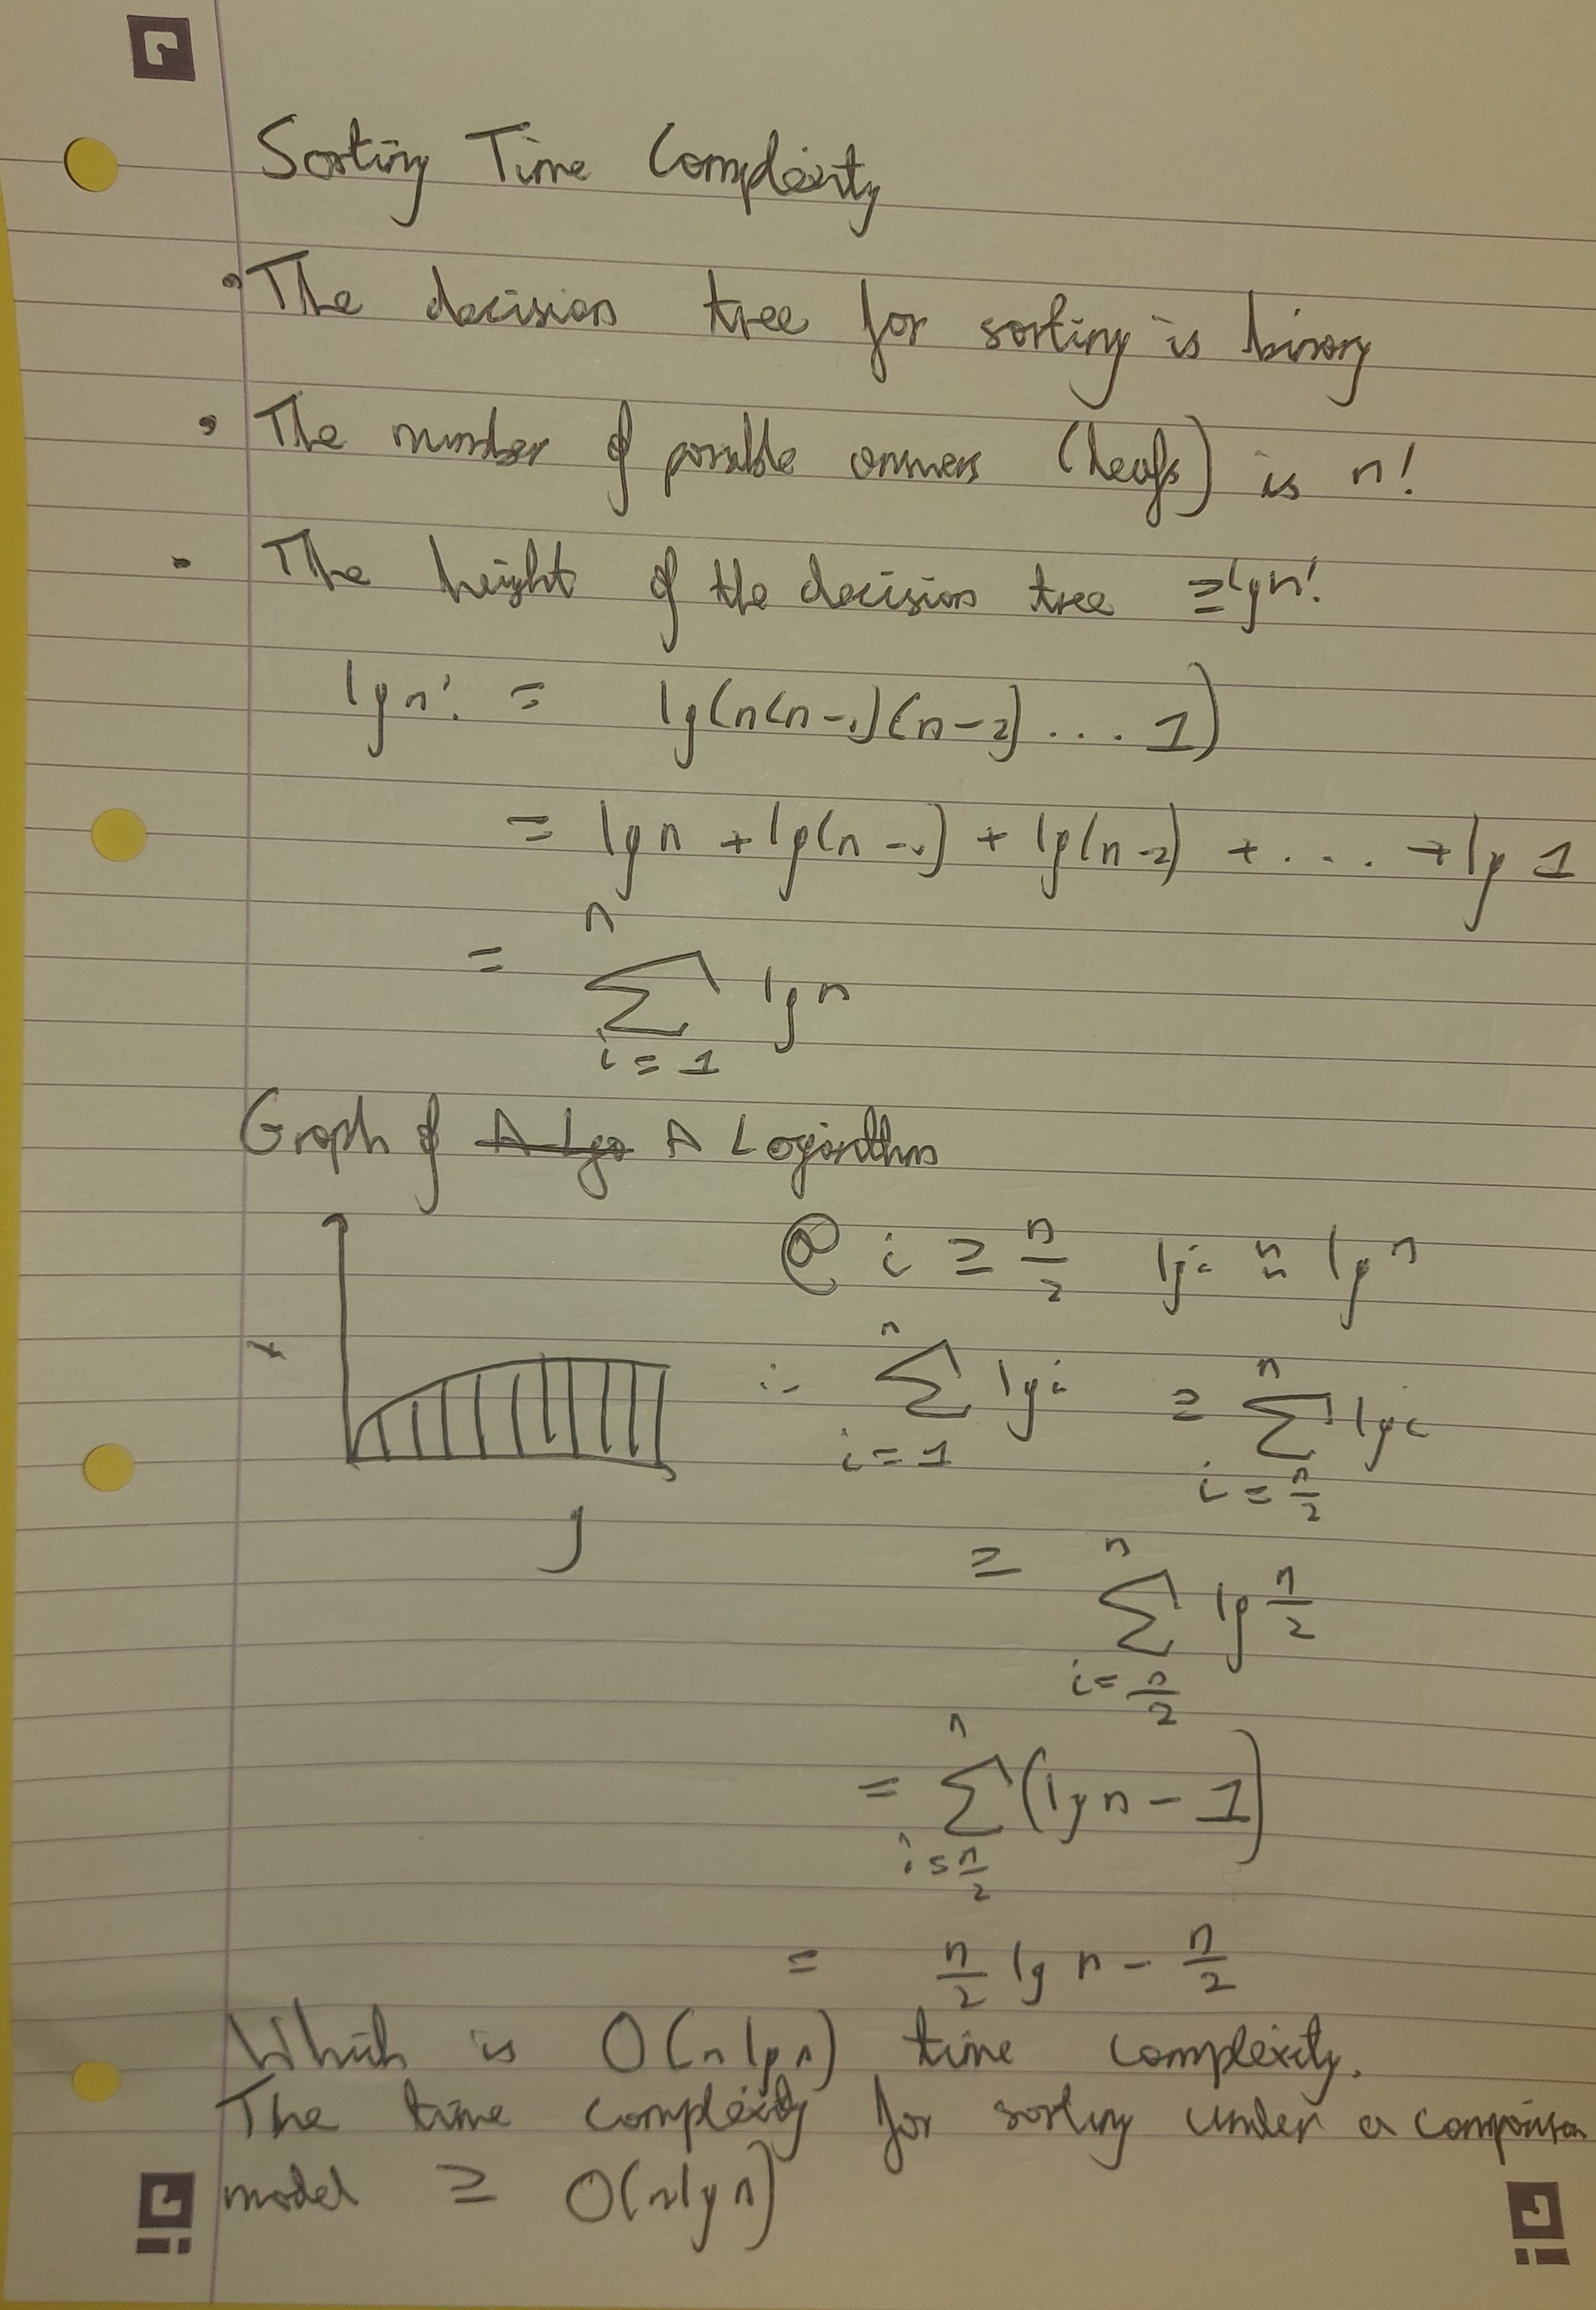 Sorting Time Complexity
• The decision tree for sorting is binary
• The number of possible answers (leafs) is n!
• The height of the decision tree ≥ lg n!
lg n! = lg(n(n-1)(n-2)....1)
= lg n + lg(n-1) + lg(n-2) + .... + lg 1
= ∑_{i=1}^{n} lg n
Graph of A Lgo A Logarithm
@ i ≥ n/2 lg i ≈ lg n
x
∴ ∑_{i=1}^{n} lg i ≥ ∑_{i=n/2}^{n} lg i
y
≥ ∑_{i=n/2}^{n} lg n/2
= ∑_{i=n/2}^{n} (lg n - 1)
= n/2 lg n - n/2
Which is O(n lg n) time complexity.
The time complexity for sorting under a comparison
model ≥ O(n lg n)